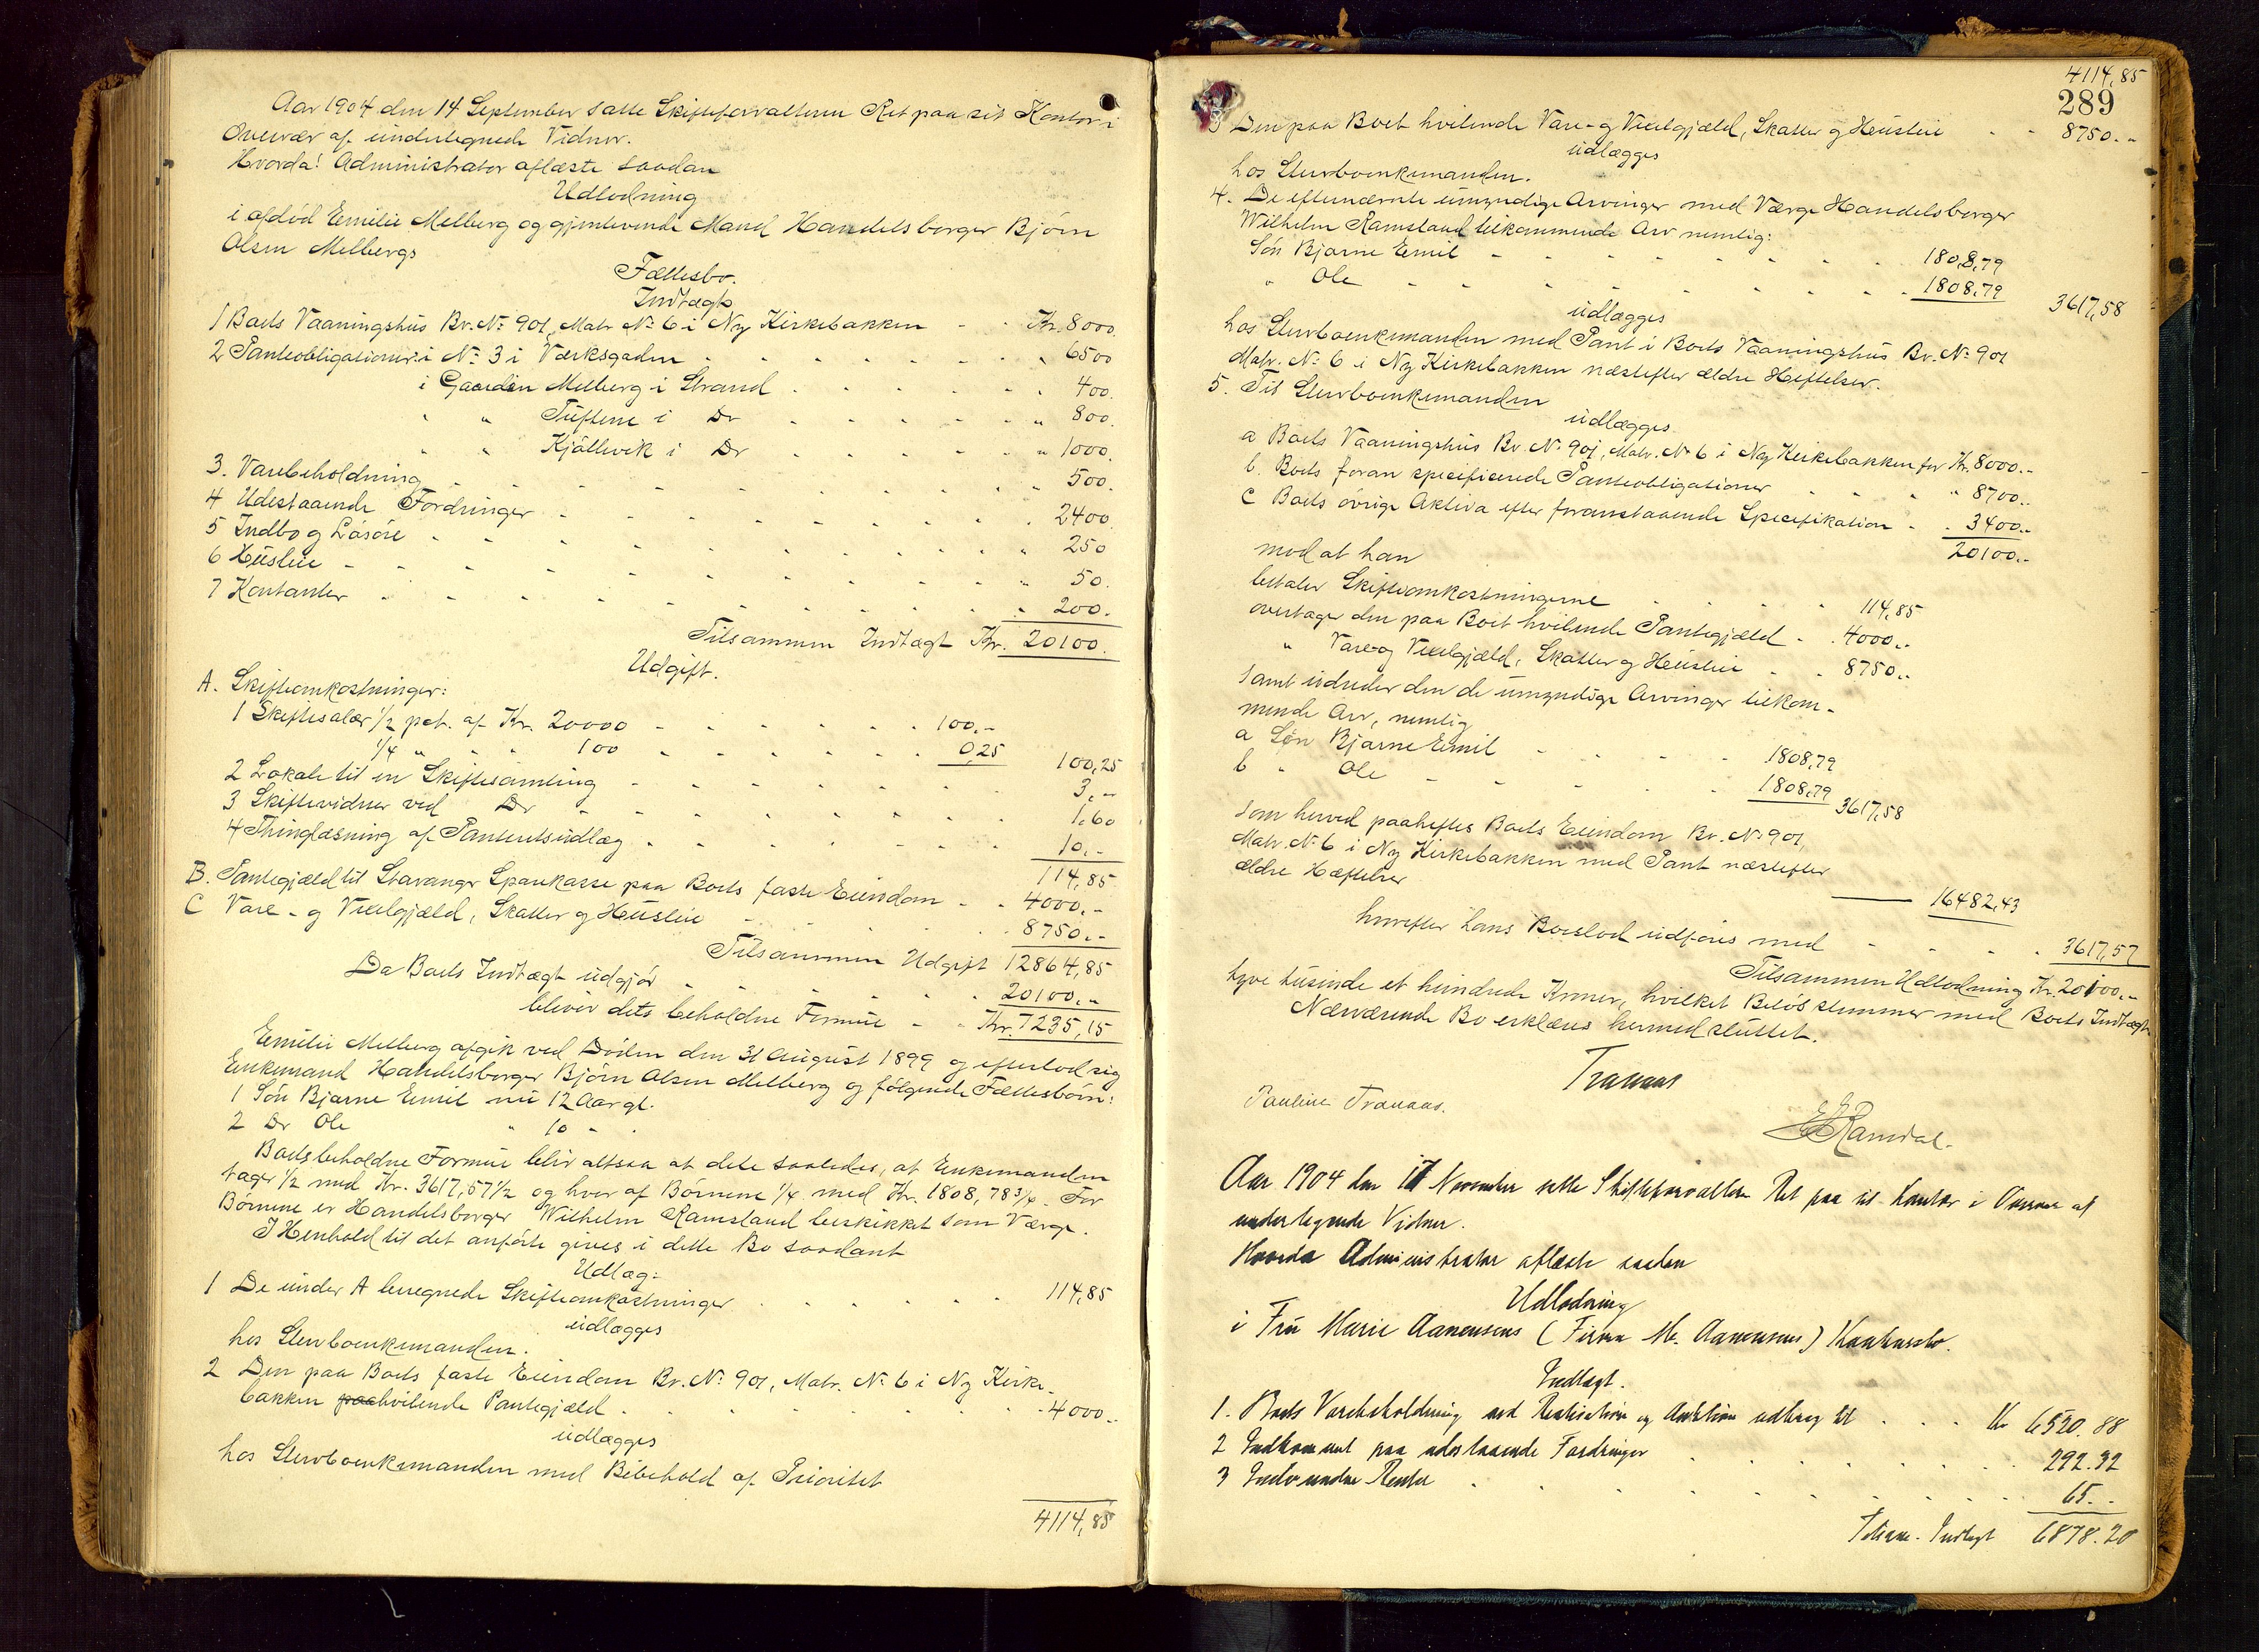 Aar 1904 den 14 September satte Skifteforvalteren Ret paa sit Kontor i
Overvær af undertegnede Vidner.
Hvorda! Administrator aflæste saadan
Udlodning
i afdød Emilie Melberg og gjenlevende Mand Handelsborger Bjørn
Olsen Melbergs
Fællesbo.
Indtægt
1 Boets Vaaningshus Br. No 901, Matr No 6 i Ny Kirkebakken - - Kr. 8000.
2 Panteobligationer: i No 3 i Værksgaden - - - " 6500
i Gaarden Melberg i Strand - - - " 400.
" " Tuftene i Do - - - " 800.
" " Kjølevik i Do - - - " 1000.
3. Varebeholdning - - - " 500.
4 Udestaaende Fordringer - - - 2400
5 Indbo og Løsøre - - - " 250
6 Husleie - - - " 50.
7 Kontanter - - - " 200.
Tilsammen Indtægt Kr. 20100.
Udgift.
A. Skifteomkostninger:
1 Skiftesalær 1/2 pct. af Kr. 20000 - - - 100,-
1/4 " " " 100 - - - 0,25 100,25
2 Lokale til en Skiftesamling - - - 3,-
3 Skiftevidner ved Do - - - 1,60
4 Thinglæsning af Panteretsudlæg - - - 10,-
114,85
B. Pantegjæld til Stavanger Sparekasse paa Boets faste Eiendom - - 4000,-
C Vare- og Vexelgjæld, Skatter og Husleie - - 8750,-
Tilsammen Udgift 12864,85
Da Boets Indtægt udgjør - - - 20100,-
bliver dets beholdne Formue - - Kr. 7235,15
Emilie Melberg afgik ved Døden den 31 August 1899 og efterlod sig
Enkemand Handelsborger Bjørn Olsen Melberg og følgende Fællesbørn:
1 Søn Bjarne Emil nu 12 Aar gl.
2 Do Ole " 10 " .
Boets beholdne Formue bliv altsaa at dele saaledes, at Enkemanden
tager 1/2 med Kr. 3617,57 1/2 og hver af Børnene 1/4 med Kr. 1808,78 3/4. For
Børnene er Handelsborger Wilhelm Ramsland beskikket som Værge.
I Henhold til det anførte gives i dette Bo saadant
Udlæg:
1 De under A beregnede Skifteomkostninger - - - 114,85
udlægges
hos Stervboenkemanden.
2 Den paa Boets faste Eiendom Br. No 901, Matr. No 6 i Ny Kirke-
bakken paahvilende Pantegjæld - - - 4000,-
udlægges
hos Stervboenkemanden med Bibehold af Prioritet
4114,85
4114,85
289
3 Den paa Boet hvilende Vare- og Vexelgjæld, Skatter og Husleie - - 8750.-
udlægges
hos Stervboenkemanden.
4. De efternævnte umyndige Arvinger med Værge Handelsborger
Wilhelm Ramsland tilkommende Arv nemlig:
Søn Bjarne Emil - - - 1808,79
" Ole - - - 1808,79 3617,58
udlægges
hos Stervboenkemanden med Pant i Boets Vaaningshus Br. No 901
Matr. No 6 i Ny Kirkebakken næstefter ældre Heftelser.
5. Til Stervboenkemanden
udlægges
a Boets Vaaningshus Br. No 901, Matr. No 6 i Ny Kirkebakken for Kr. 8000.-
b. Boets foran specificerede Panteobligationer - - - " 8700.-
c Boets øvrige Aktiva efter foranstaaende Specifikation - - 3400.-
20100.-
mod at han
betaler Skifteomkostningerne - - - 114,85
overtager den paa Boet hvilende Pantegjæld - - 4000.-
" Vare- og Vexelgjæld, Skatter og Husleie - - 8750.-
samt udreder den de umyndige Arvinger tilkom-
mende Arv, nemlig
a Søn Bjarne Emil - - - 1808,79
b " Ole - - - 1808,79 3617,58
som herved paaheftes Boets Eiendom Br. No 901,
Matr. No 6 i Ny Kirkebakken med Pant næstefter
ældre Hæftelser
16482,43
hvorefter hans Boeslod udføres med - - - 3617,57
Tilsammen Udlodning Kr. 20100.-
tyve tusinde et hundrede Kroner, hvilket Beløb stemmer med Boets Indtægt.
Nærværende Bo erklæres hermed sluttet.
Tranaas
Pauline Tranaas.
Ramdal.
Aar 1904 den 17 November satte Skifteforvalteren Ret paa sit Kontor i Overvær af
undertegnede Vidner.
Hvorda Administrator aflæste saadan
Udlodning
i Fru Marie Aanensens (Firma M. Aanensens) Konkursbo.
Indtægt.
1. Boets Varebeholdning ved Realisation og Auktion udbragt til - - - Kr 6520.88
2 Indkommet paa udestaaende Fordringer - - - 292.32
3 Indvundne Renter - - - 65.-
Tilsam. Indtægt 6878.20